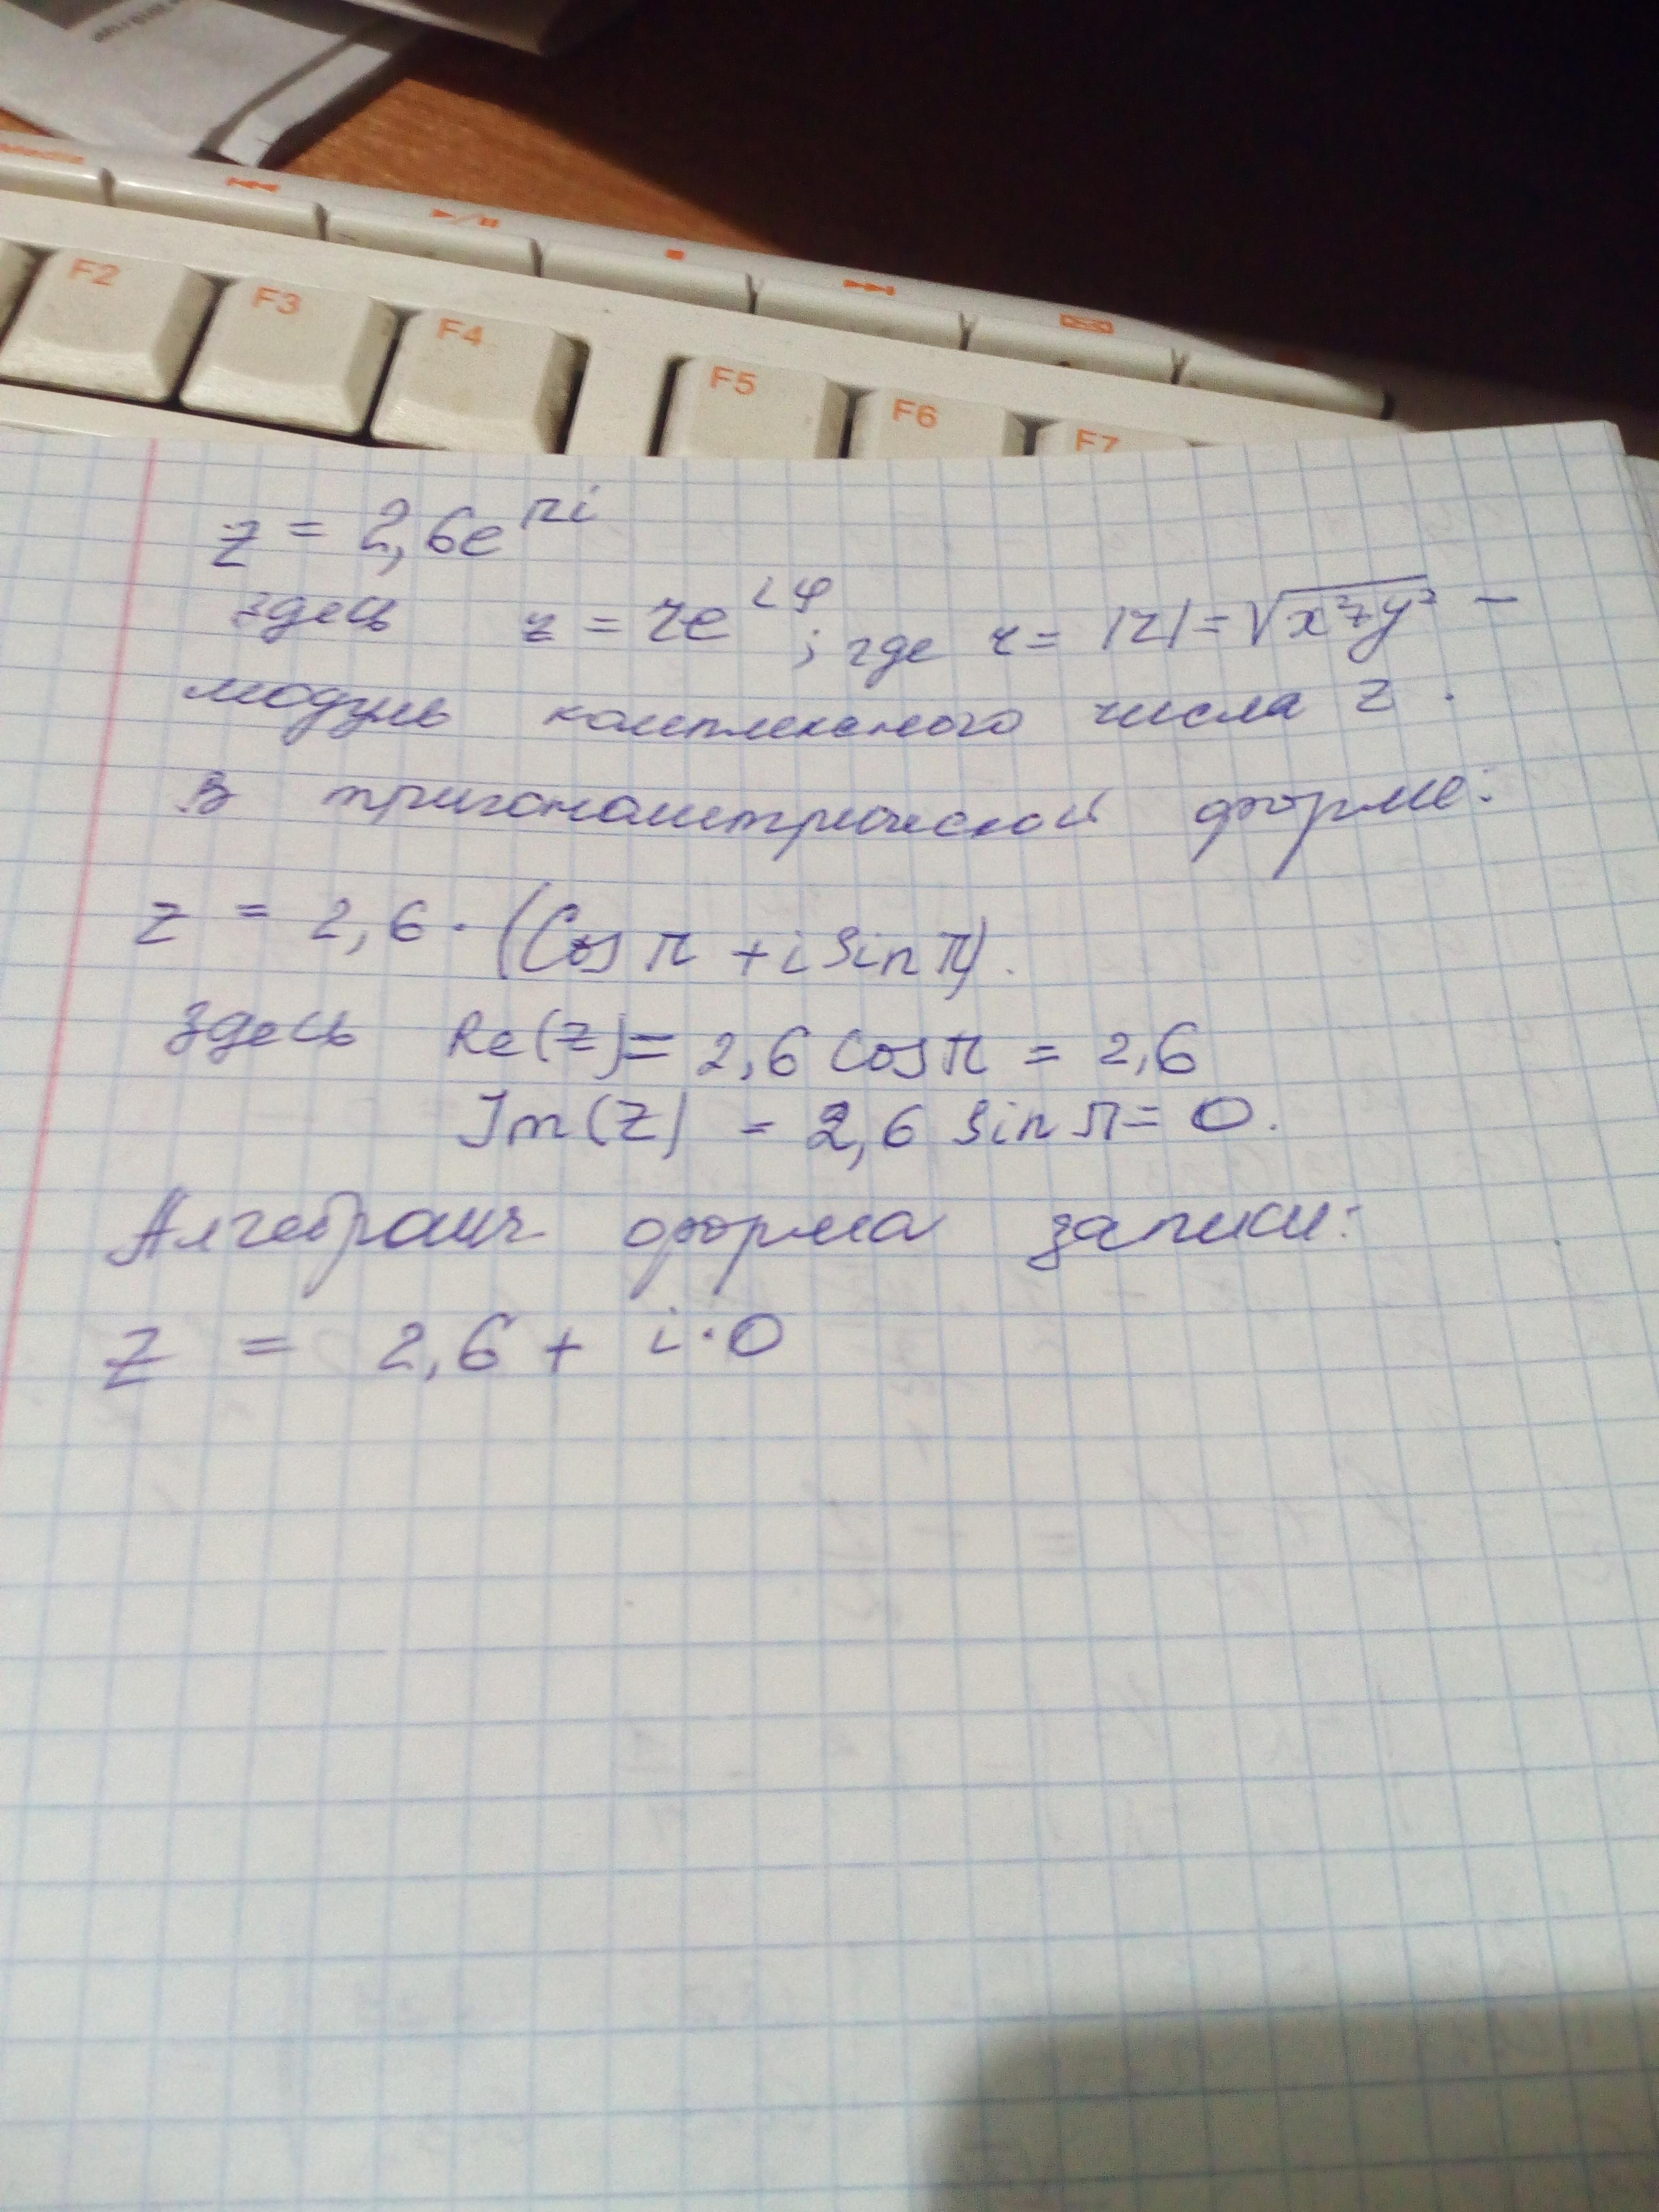 F2 F3 F4 F5 F6 F7
z = 2,6e^{πi}
здесь z = re^{iφ}; где r = |z| = √x²+y² –
модуль комплексного числа z.
В тригонометрической форме:
z = 2,6 · (Cos π + i Sin π).
здесь Re(z) = 2,6 Cos π = 2,6
Im(z) = 2,6 Sin π = 0.
Алгебраич форма записи:
z = 2,6 + i·0